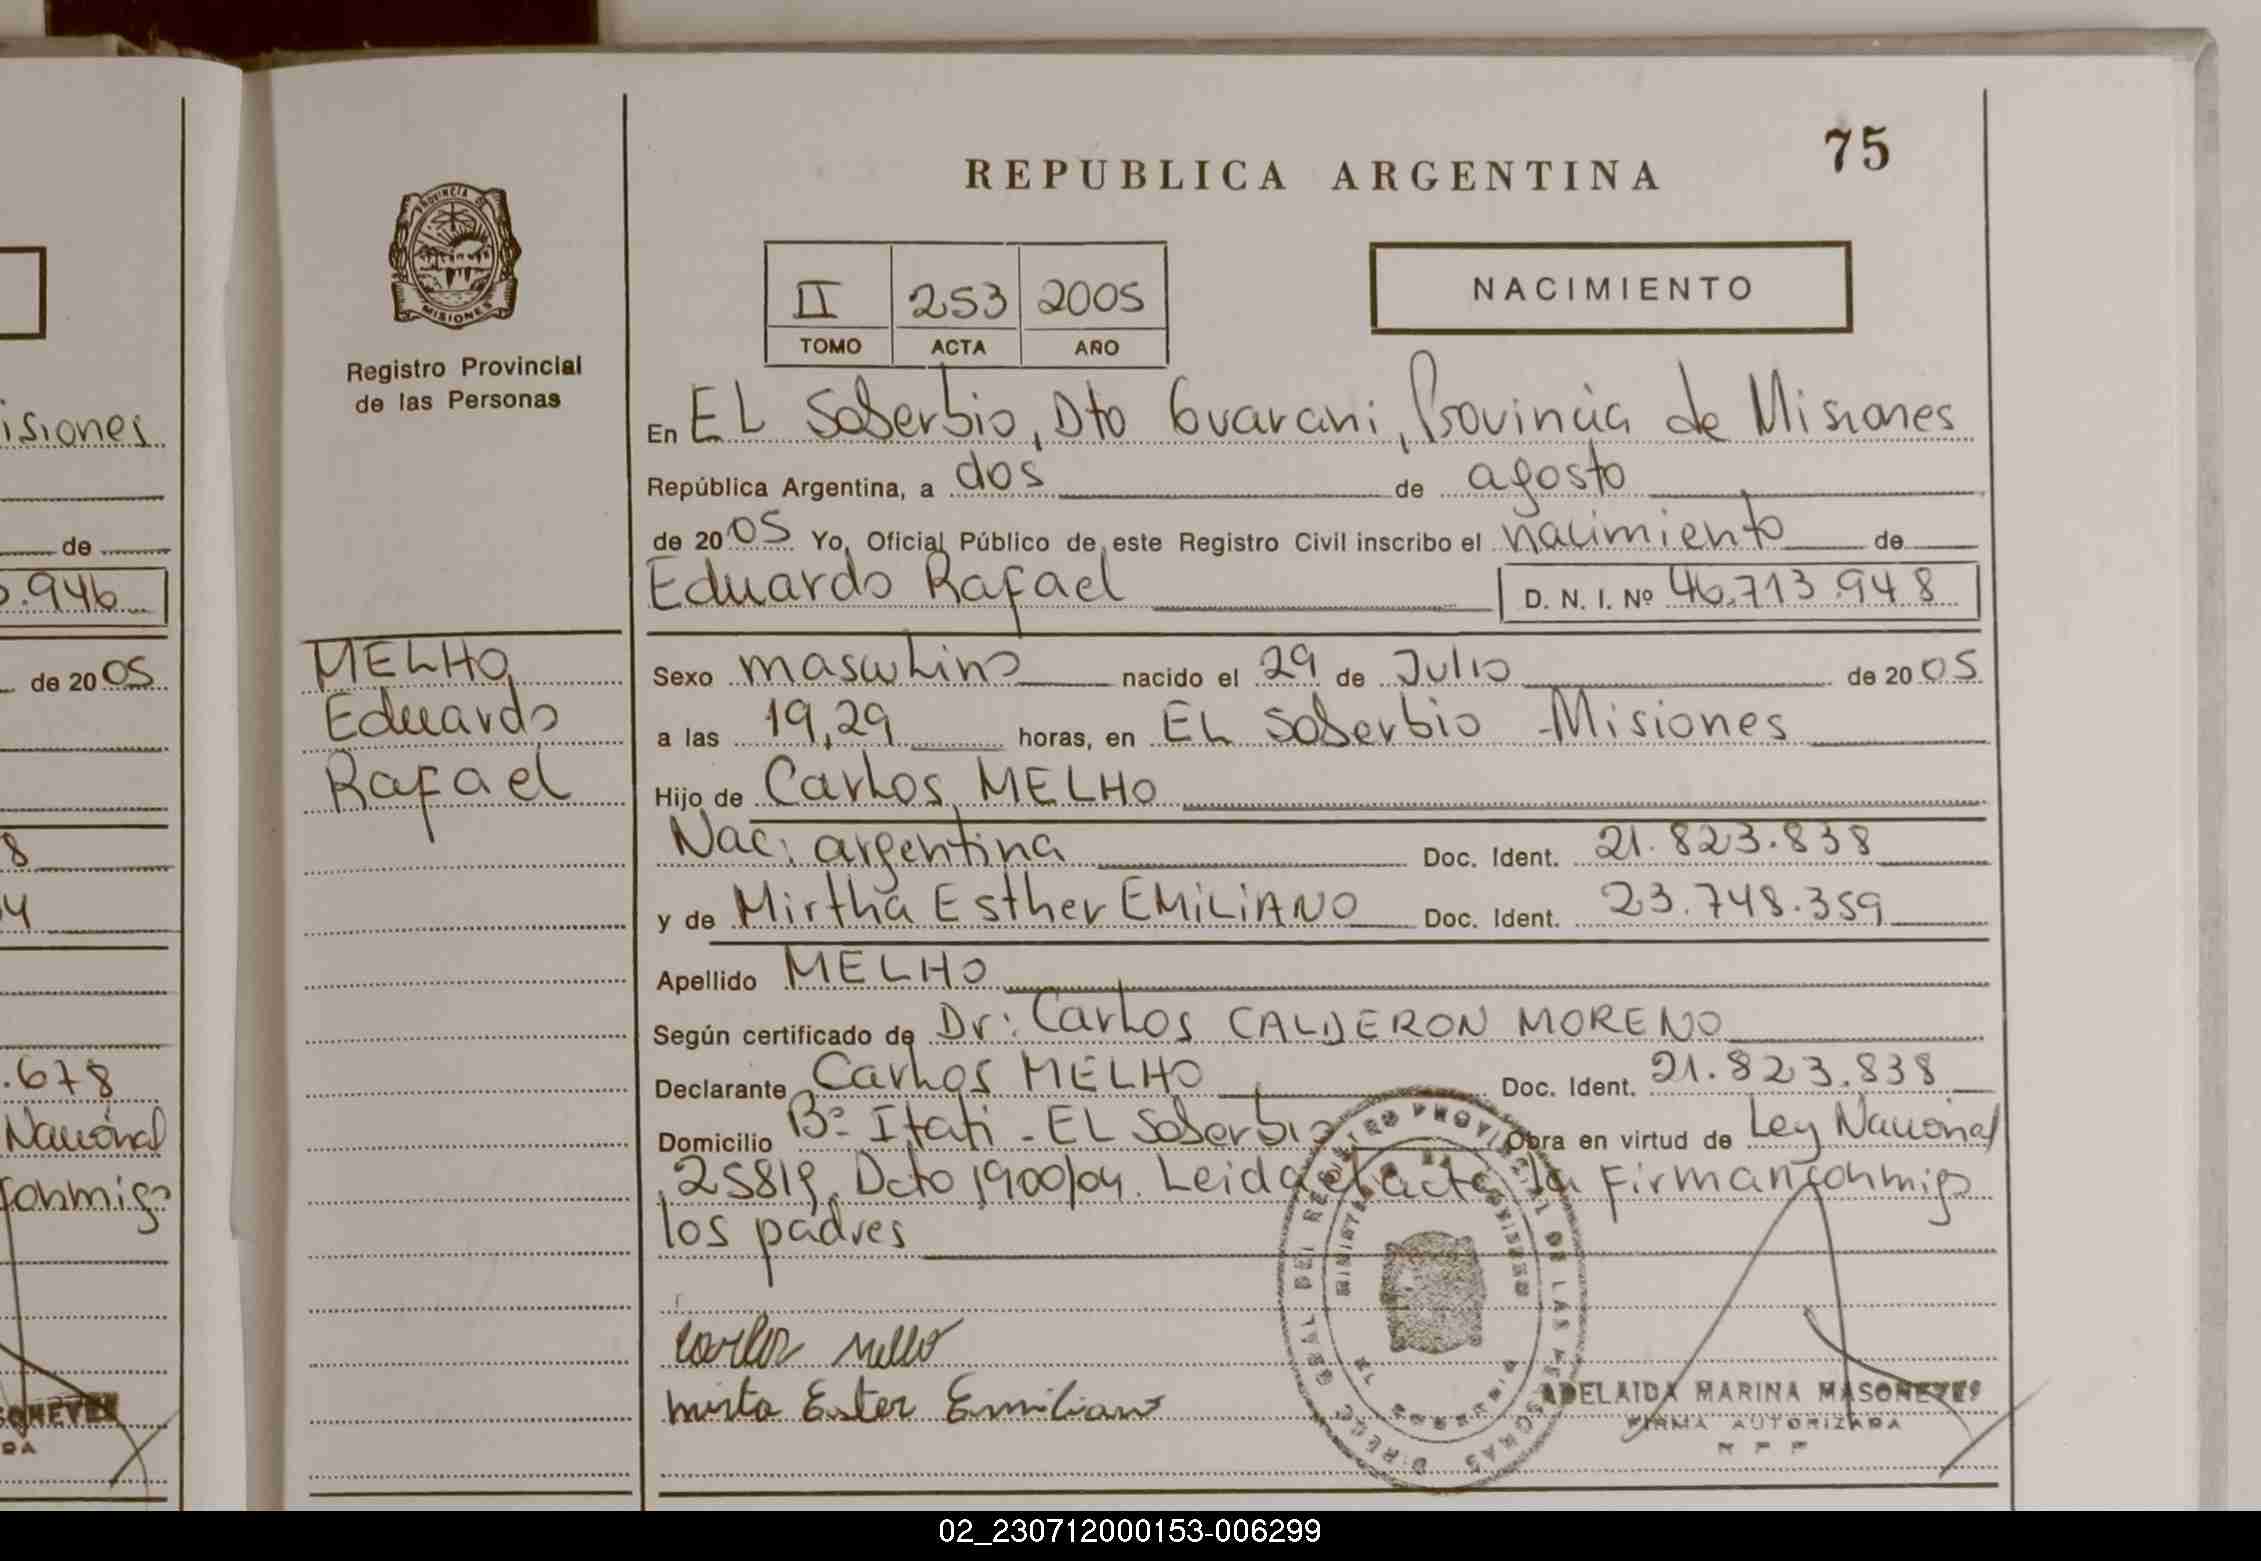 75
REPUBLICA ARGENTINA
PROVINCIA DE
MISIONES
Registro Provincial
de las Personas
NACIMIENTO
II 253 2005
TOMO ACTA AÑO
En EL Soberbio, Dto Guarani, Provincia de Misiones
República Argentina, a dos de agosto
de 2005 Yo, Oficial Público de este Registro Civil inscribo el nacimiento de
Eduardo Rafael D. N. I. Nº 46.713.948
MELHO
Eduardo
Rafael
Sexo masculino nacido el 29 de Julio de 2005
a las 19,29 horas, en EL Soberbio - Misiones
Hijo de Carlos MELHO
Nac: argentina Doc. Ident. 21.823.838
y de Mirtha Esther EMILIANO Doc. Ident. 23.748.359
Apellido MELHO
Según certificado de Dr: Carlos CALDERON MORENO
Declarante Carlos MELHO Doc. Ident. 21.823.838
Domicilio Bº Itati - EL Soberbio Obra en virtud de Ley Nacional
25819, Dcto 1900/04. Leida el acta la Firman conmigo
los padres
Carlos mello
mirta Ester Emiliano
ADELAIDA MARINA MASONEYES
FIRMA AUTORIZADA
isiones
de
.946
de 2005
8
4
.678
Nacional
conmigo
02_230712000153-006299